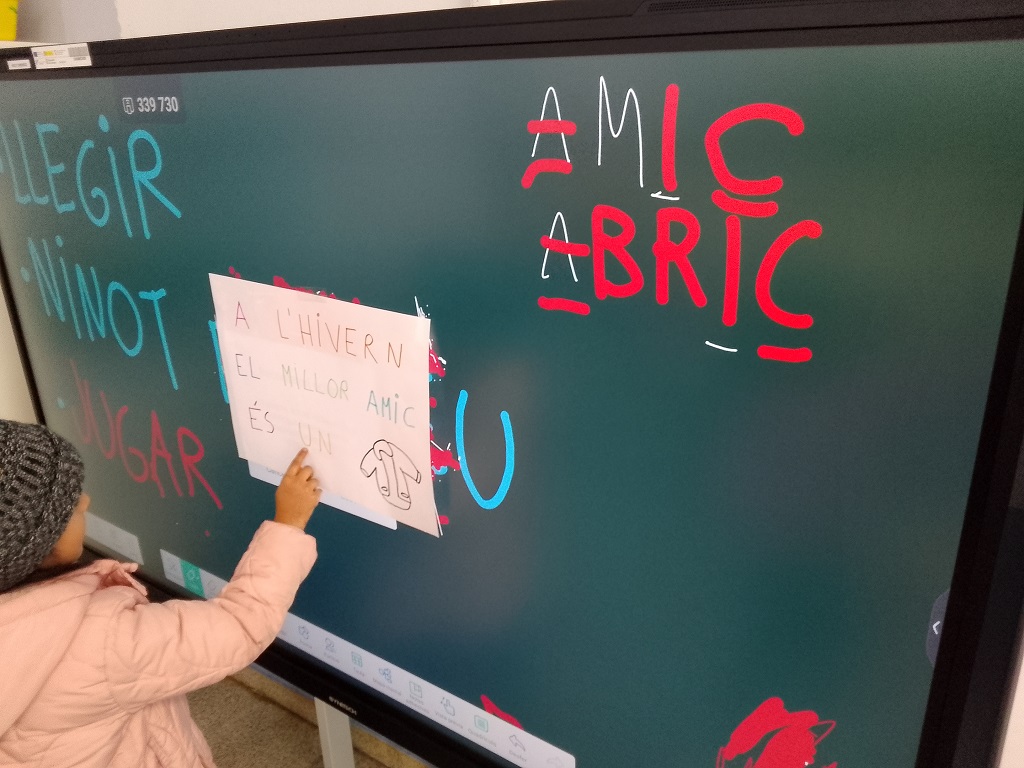 339 730
LLEGIR
NINOT
JUGAR
A L'HIVERN
EL MILLOR AMIC
ÉS UN
U
AMIC
ABRIC